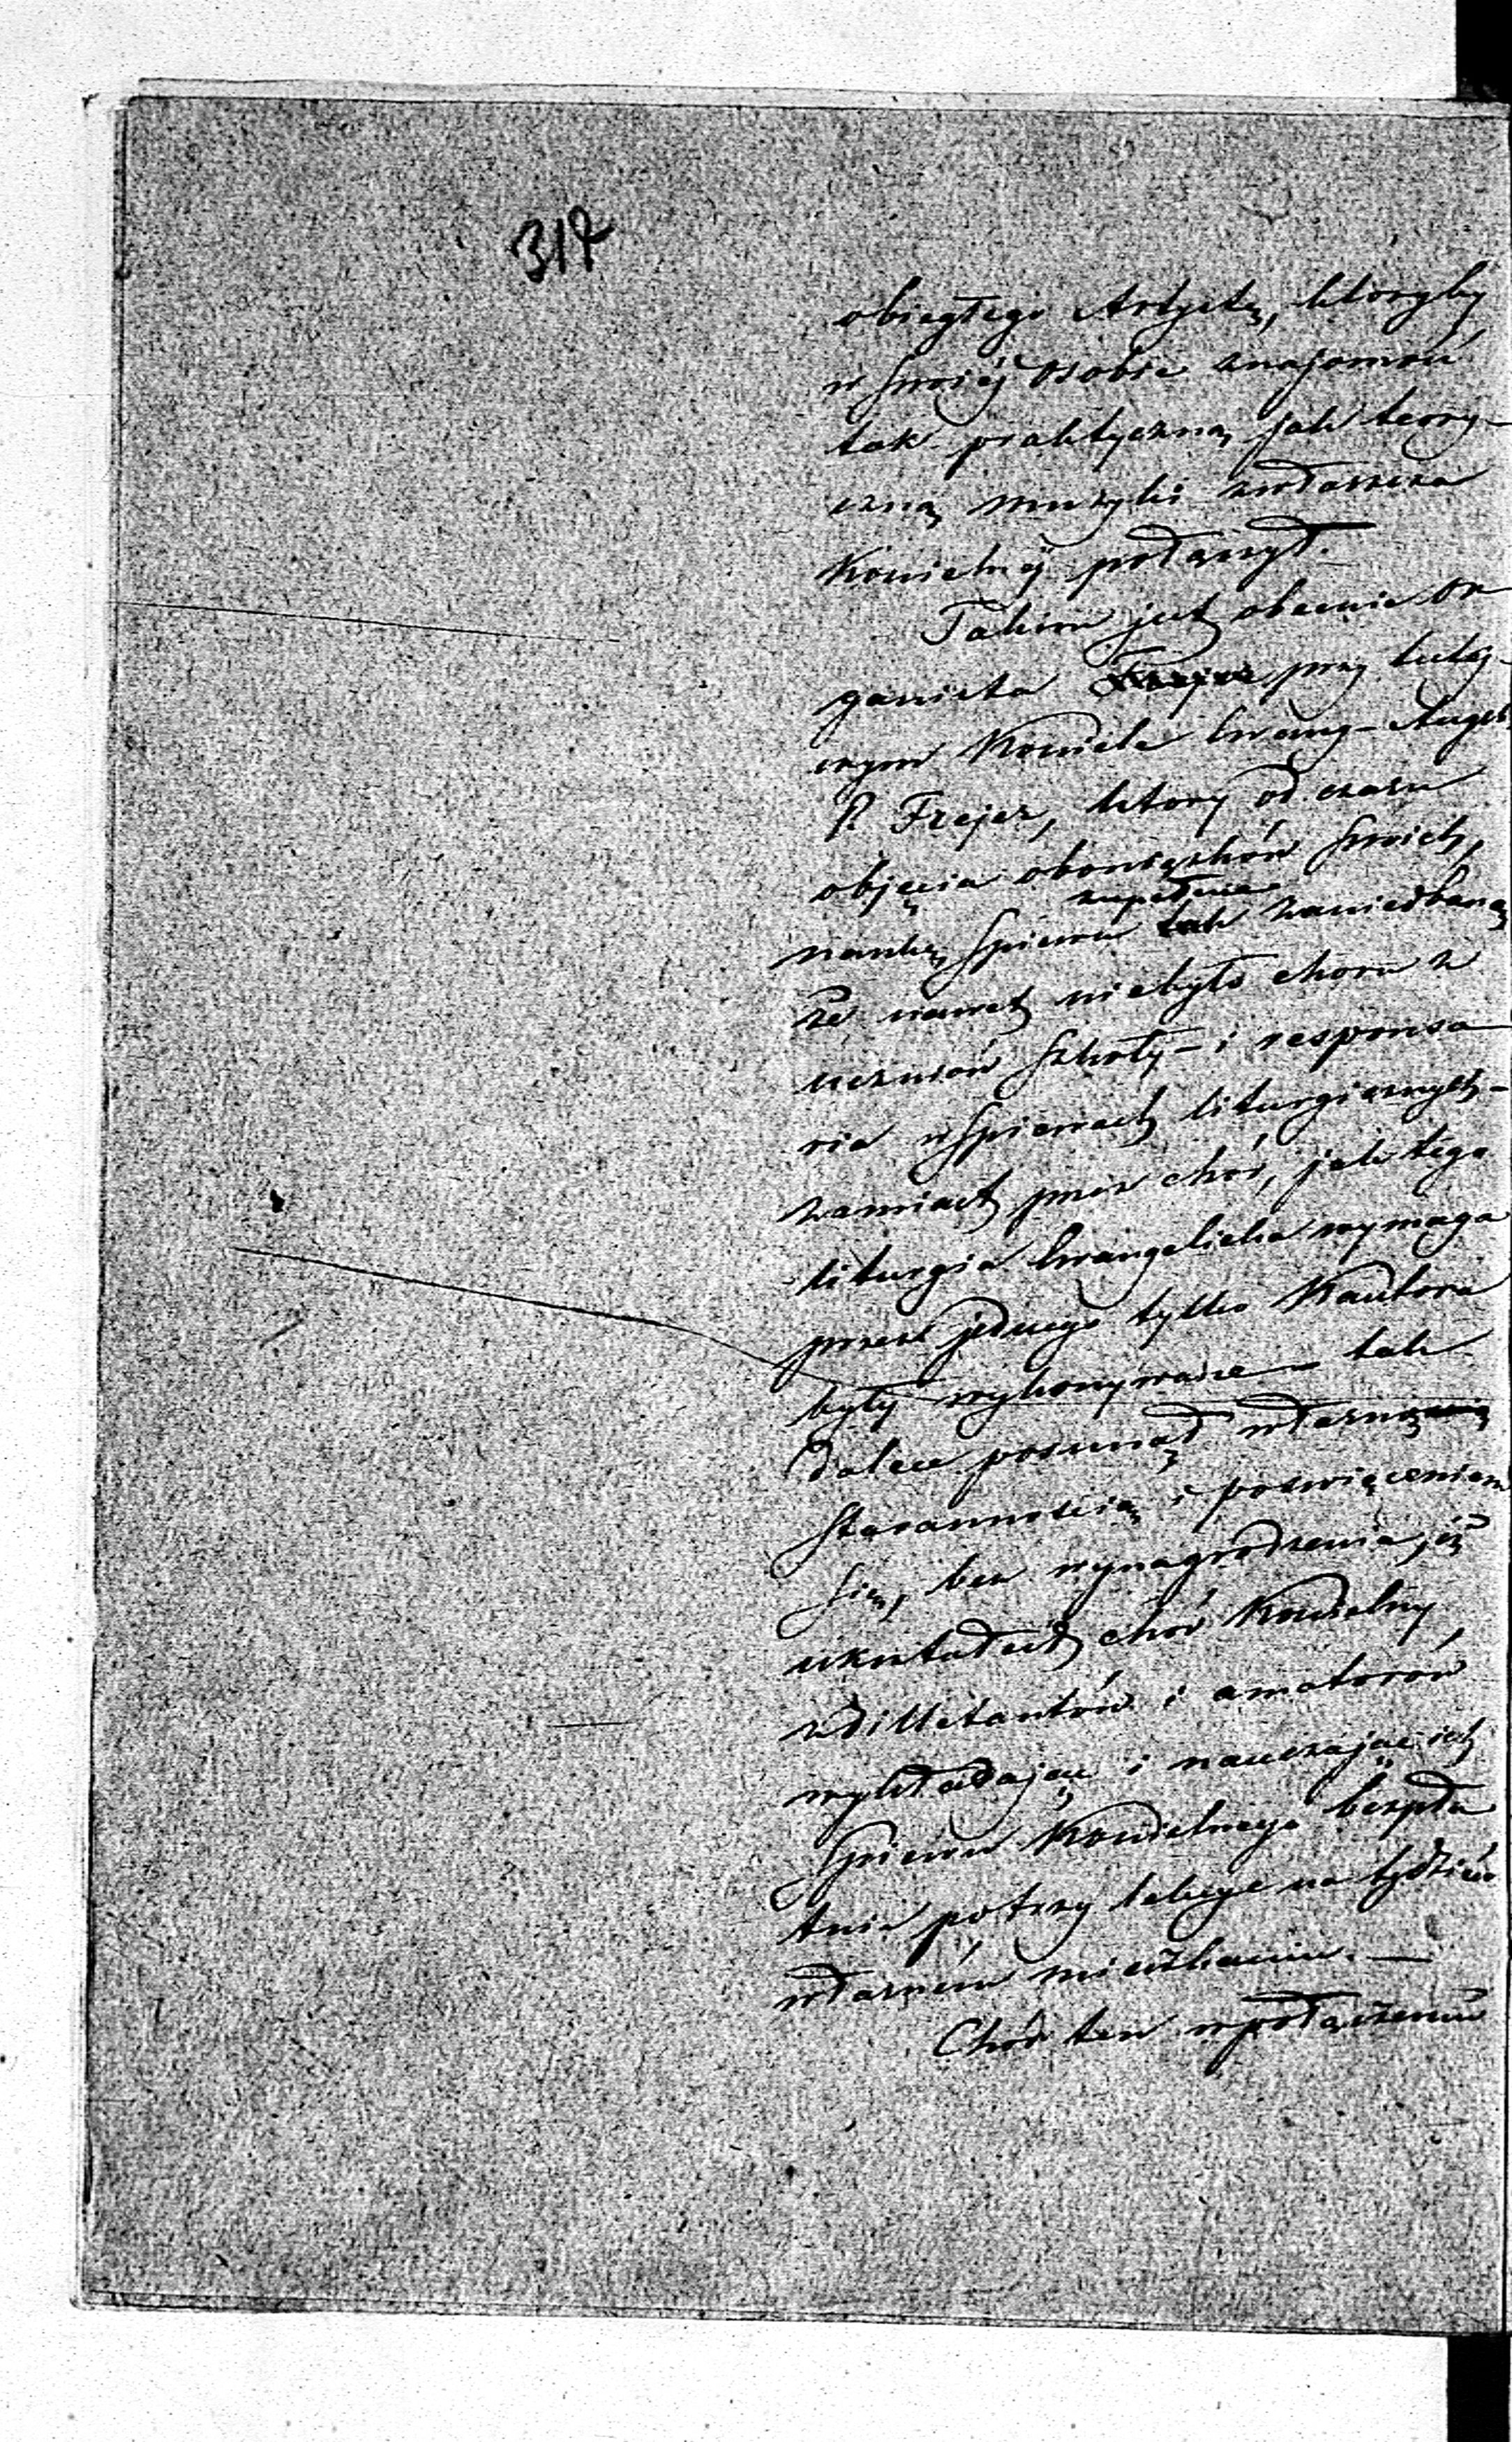 317
obiegłego Artystę, ktoryby
w swojéj osobie znajomość
tak praktyczną jak teory-
czną muzyki zwłaszcza
Kościelnéj połączył.
Takim jest obecnie or
ganista przy tutéj
szym Kościele Ewang-Augs
P. Frejer, ktory od czasu
objęcia obowiązków swoich,
naukę spiewu tak zupełnie zaniedbaną
że nawet niebyło choru z
uczniów szkoły – i responso
ria w spiewach liturgicznych –
zamiast przez chór, jak tego
liturgia Ewangelicka wymaga
przez jednego tylko Kantora
były wykonywane – tak
dalece posunął własną
starannością i poswięceniem
się, bez wynagrodzenia, iż
ukształcił chór Kościelny
z dilletantów i amatorów
wykładając i nauczając ich
spiewu Kościelnego bezpła
tnie po trzy lekcye na tydzień
własném mieszkaniu. —
Chór ten w połączeniu